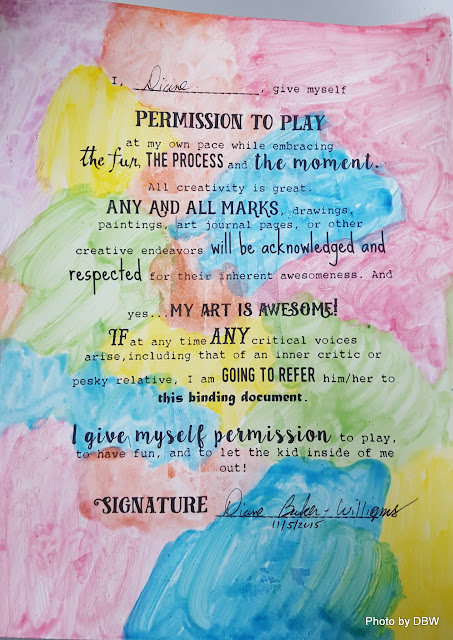 I, Diane, give myself
PERMISSION TO PLAY
at my own pace while embracing
the fun, THE PROCESS and the moment.
All creativity is great.
ANY AND ALL MARKS, drawings,
paintings, art journal pages, or other
creative endeavors will be acknowledged and
respected for their inherent awesomeness. And
yes...MY ART IS AWESOME!
IF at any time ANY critical voices
arise,including that of an inner critic or
pesky relative, I am GOING TO REFER him/her to
this binding document.
I give myself permission to play,
to have fun, and to let the kid inside of me
out!
SIGNATURE Diane Baker-Williams
11/5/2015
Photo by DBW